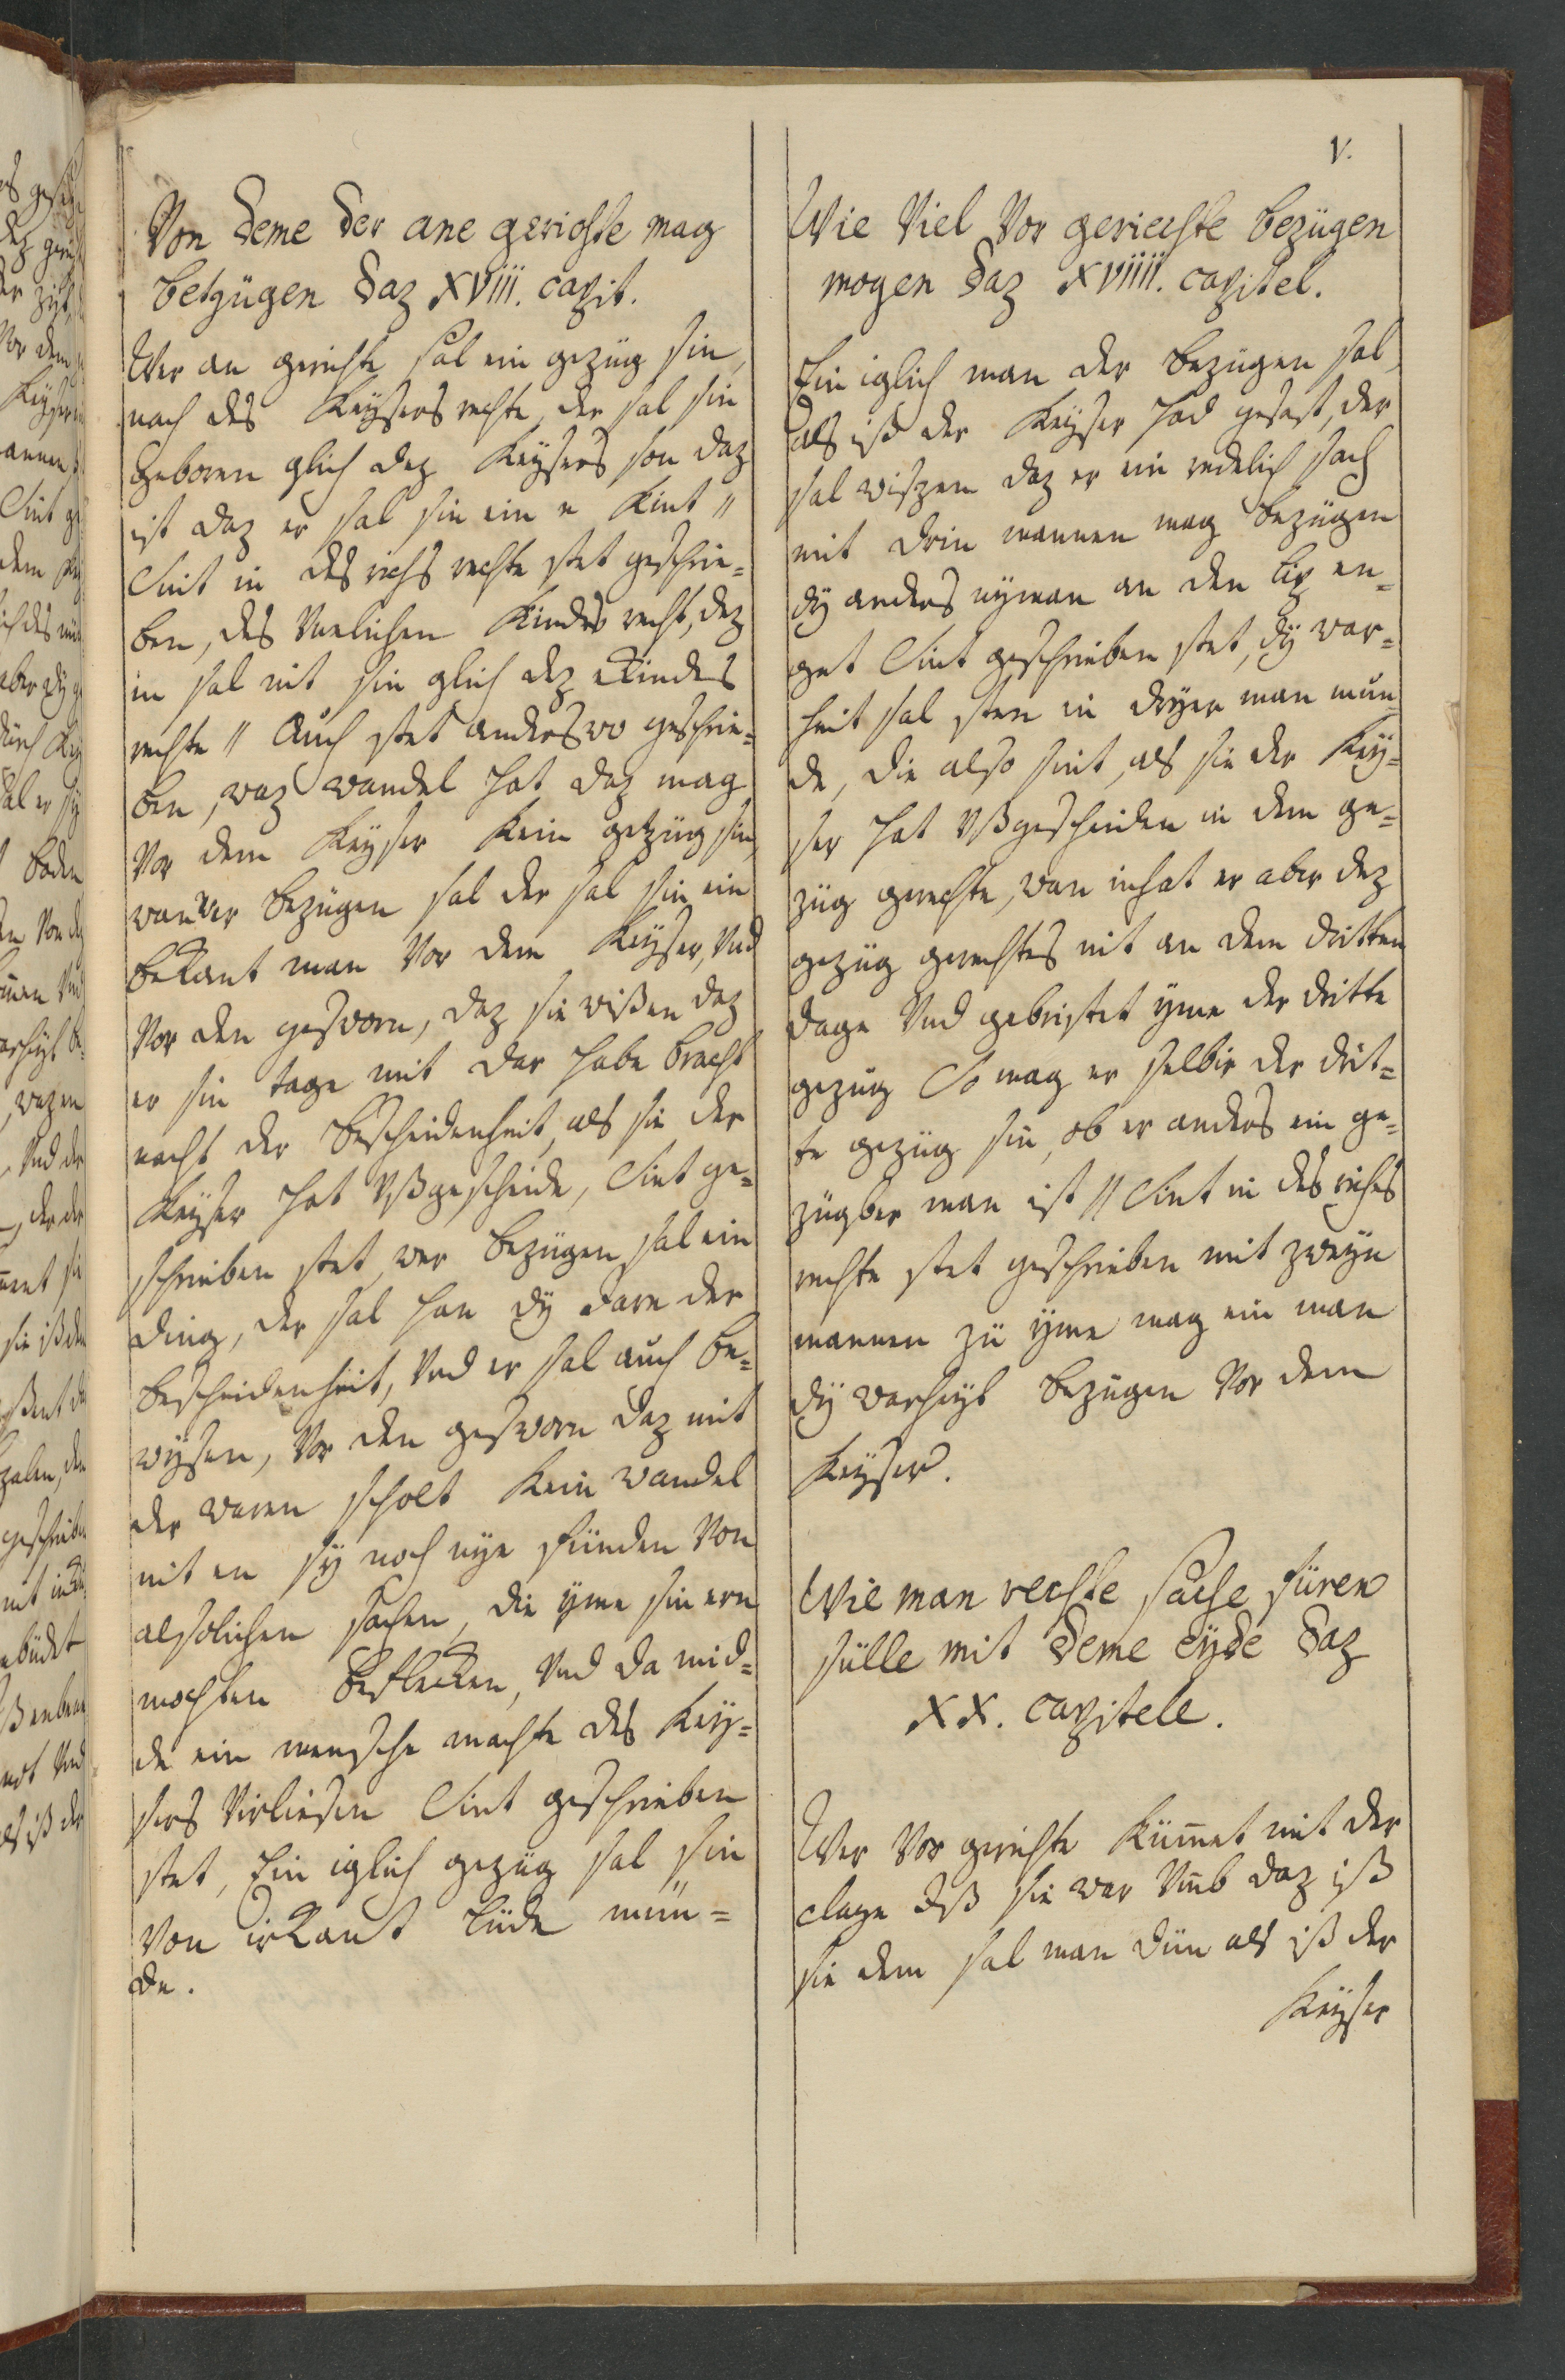 V.
Von deme der ane gerichte mag
betzügen daz XVIII. capit.
Wer an gerichte sal ein gezüg sin,
nach des Keysers rechte, der sal sin
geboren glich dez Keysers son daz
ist daz er sal sin ein e Kint //
Sint in des richs rechte stet geschrie=
ben, des Unelichen Kindes recht, dez
in sal nit sin glich dez eKindes
rechte // Auch stet anderswo geschrie=
ben, waz wandel hat daz mag
Vor dem Keyser kein getzüg sin,
wan wer bezügen sal der sal sin ein
bekant man Vor dem Keyser, Und
Vor den gesworn, daz sie wißen daz
er sin tage mit dar habe bracht
nach der bescheidenheit, als sie der
Keyser hat Vßgescheide, Sint ge=
schrieben stet, wer bezügen sal ein
ding, der sal han dy Jare der
bescheidenheit, Und er sal auch be=
wysen, Vor den gesworn daz mit
der waren scholt Kein wandel
nit en sy noch nye fünden Von
alsolichen sachen, die yme sin ern
mochten beflecken, Und da mid=
de ein mensche machte des Key=
sers Virliesen Sint geschrieben
stet, Ein iglich gezüg sal sin
Von irkant lüde mün=
de.
Wie Viel Vor geriechte bezügen
mogen daz XVIIII. capitel.
Ein iglich man der bezügen sal,
als iß der Keyser had gesast, der
sal wißzen daz er ein redelich sach
mit drin mannen mag bezügen
dy anders nyman an den lip en=
get Sint geschrieben stet, dy war=
heit sal sten in dryer man mün
de, die also sint, als sie der Key=
ser hat Vßgescheiden in dem ge=
züg gerechte, wan inhat er aber dez
gezüg gerechtes nit an dem dritten
dage Und gebristet yme der dritte
gezüg So mag er selbir der drit=
te gezüg sin, ob er anders ein ge=
zügber man ist // Sint in des riches
rechte stet geschrieben mit zweyn
mannen zü yme mag ein man
dy warheyt bezügen Vor dem
Keyser.
Wie man rechte sache füren
sülle mit deme eyde daz
XX. capitele.
Wer Vor gerichte Küm̄et mit der
clage daß sie war Um̄b daz iß
sie dem sal man dün als iß der
Keyser